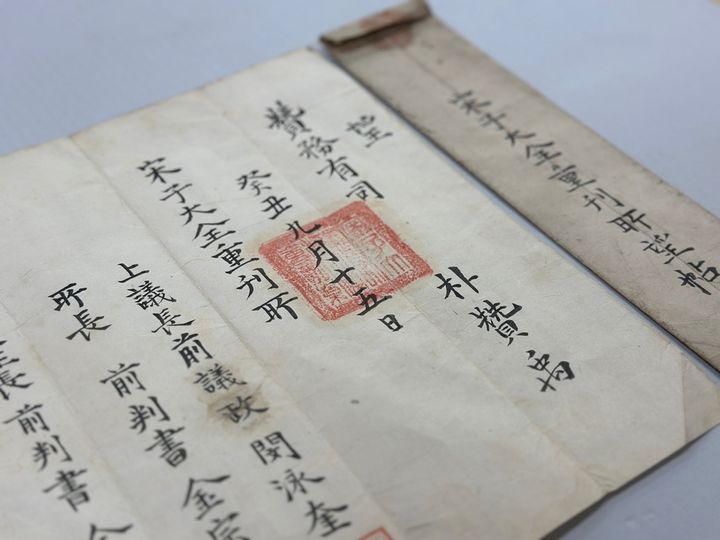 宋子大全重刊所望帖
望
朴贊禹
贊務有司
癸丑九月十五日
宋子大全重刊所
上議長前議政閔泳奎
所長 前判書 金宗
長前判書 金